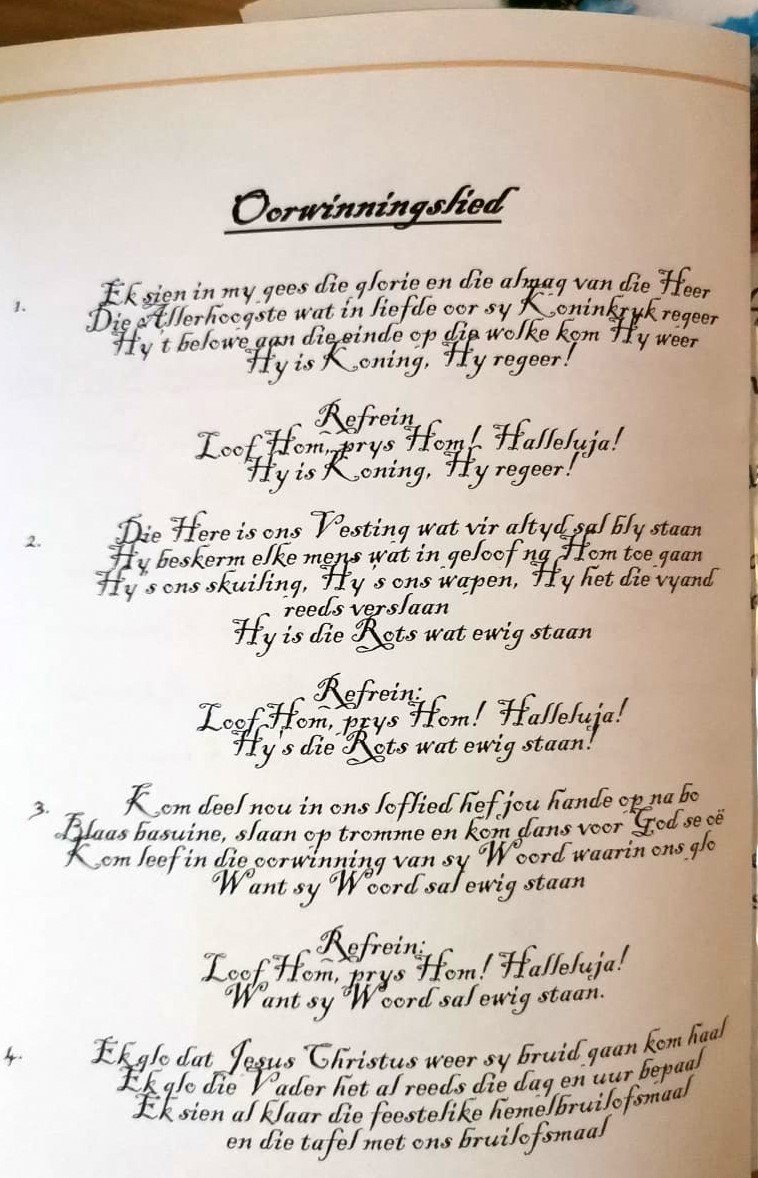 Oorwinningslied
1. Ek sien in my gees die glorie en die almag van die Heer
Die Allerhoogste wat in liefde oor sy Koninkryk regeer
Hy t belowe aan die einde op die wolke kom Hy weer
Hy is Koning, Hy regeer!
Refrein
Loof Hom, prys Hom! Halleluja!
Hy is Koning, Hy regeer!
2. Die Here is ons Vesting wat vir altyd sal bly staan
Hy beskerm elke mens wat in geloof na Hom toe gaan
Hy's ons skuiling, Hy's ons wapen, Hy het die vyand
reeds verslaan
Hy is die Rots wat ewig staan
Refrein:
Loof Hom, prys Hom! Halleluja!
Hy's die Rots wat ewig staan!
3. Kom deel nou in ons loflied hef jou hande op na bo
Blaas basuine, slaan op tromme en kom dans voor God se oë
Kom leef in die oorwinning van sy Woord waarin ons glo
Want sy Woord sal ewig staan
Refrein:
Loof Hom, prys Hom! Halleluja!
Want sy Woord sal ewig staan.
4. Ek glo dat Jesus Christus weer sy bruid gaan kom haal
Ek glo die Vader het al reeds die dag en uur bepaal
Ek sien al klaar die feestelike hemelbruilofsmaal
en die tafel met ons bruilofsmaal